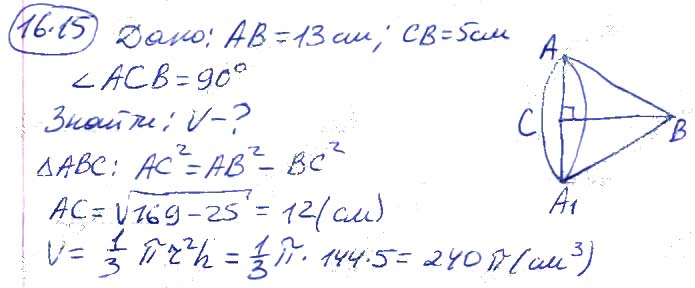 16.15 Дано: AB = 13 см; CB = 5 см
∠ACB = 90°
Знайти: V - ?
△ABC: AC² = AB² - BC²
AC = √169 - 25 = 12 (см)
V = 1/3 πr²h = 1/3 π · 144 · 5 = 240π (см³)
A
C
B
A₁